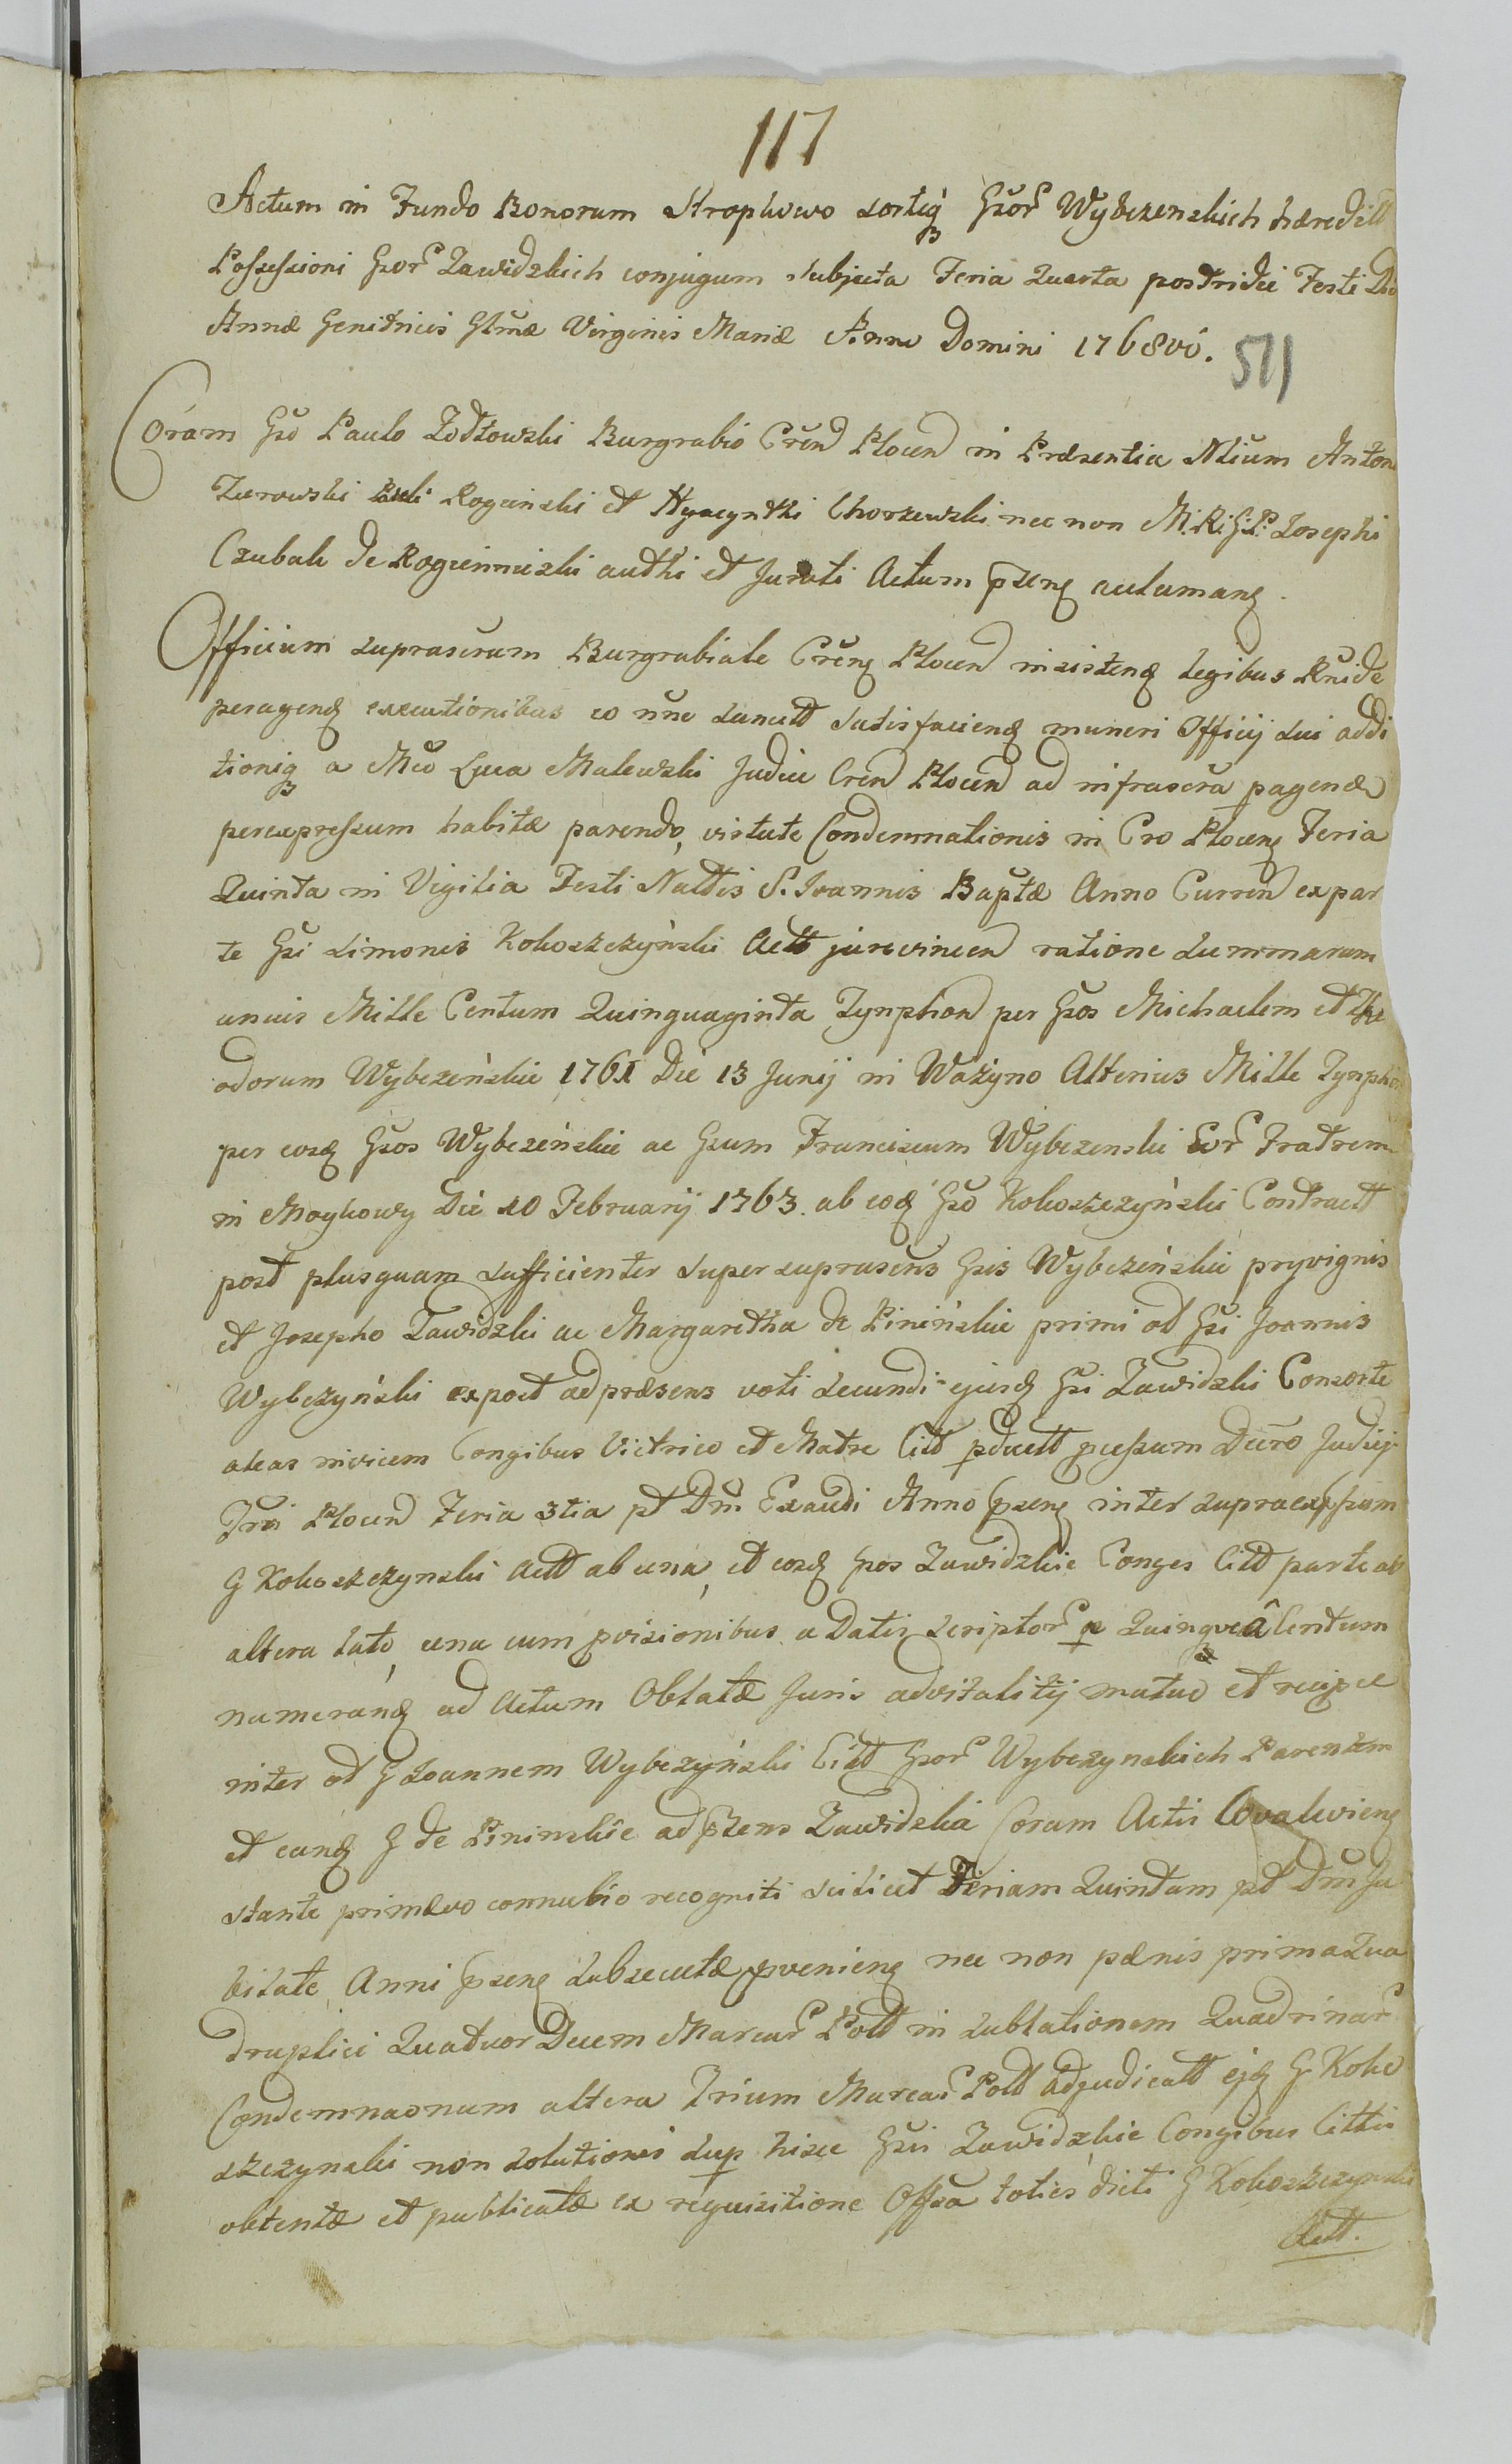 117
Actum in Fundo Bonorum Strophowo sortisq Gsor Wybczenskich hæredit
Possessioni Gsor Zawidzkich conjugum subjecta Feria Quarta postridie Festi Div
Annæ Genitricis Glmæ Virginis Mariæ Anno Domini 1768vo.
511
Coram Gso Paulo Zodtowski Burgrabio Cren Plocen in Præsentia Nlium Anton
Zurowski Pauli Roguinski et Hyacynthi Chorzewski nec non M:R:G:R: Josephi
Czubak de Rogieniuszki authi et Jurati Actum pszens acclamans.
Officium suprascrum Burgrabiale Crens Plocen insistens legibus Rnide
peragens executionibus eo nunc sanctt satisfaciens muneri Officij sui addi
tionisq a Mco Luca Malewski Judice Cren Plocen ad infrascra pagenda
perexpressum habitæ parendo, virtute Condemnationis in Cro Plocens Feria
Quinta in Vigilia Festi Nattis S. Joannis Baptæ Anno Curren expar
te Gsi Simonis Kokoszczyński Actt jurevincen ratione summarum
unius Mille Centum Quinquaginta Tynphon per Gsos Michaelem et The
odorum Wybczeńskie 1761 Die 13 Junij in Ważyno Alterius Mille Tynpho
per eosd Gsos Wybczeńskie ac Gsum Franciscum Wybczenski Eor Fratrem
in Moykowy Die 10 Februarij 1763. ab eod Gso Kokoszczyński Contractt
post plusquam sufficienter super suprascris Gsis Wybczeńskie pryvignis
et Josepho Zawidzki ac Margaretha de Pinińskie primi ol Gsi Joannis
Wybczyński expost adpræsens voti secundi ejusd Gsi Zawidzki Consorte
aleas invicem Congibus Victrico et Matre Citt pductt pcessum Decro Judicij
Trri Plocen Feria 3tia pt Dni Exaudi Anno pszens inter supraexpssum
G Kokoszczynski Actt ab una, et eosd Gsos Zawidzkie Conges Citt parte ab
altera lato, una cum pvisionibus a Datis scriptor p Quinq a Centum
numerans ad Actum Oblatæ Juris advitalitij mutuo et recipce
inter ol G Joannem Wybczyński Citt Gsor Wybczynskich Parentem
et eand G de Pininskie ad pszens Zawidzka Coram Actis
stante primævo connubio recogniti scilicet Feriam Quintam pt Dni Ju
bilate Anni pszens subsecutæ pveniens nec non pænis prima Qua
druplici Quatuor Decem Marcar Poll in sublationem Quadrinar
Condemnaonum altera Trium Marcar Poll adjudicatt ejd G Koko
szczynski non solutionis sup hisce Gsis Zawidzkie Congibus Cittis
obtentæ et publicatæ ex requisitione Offsa toties dicti G Kokoszczynski
Actt.